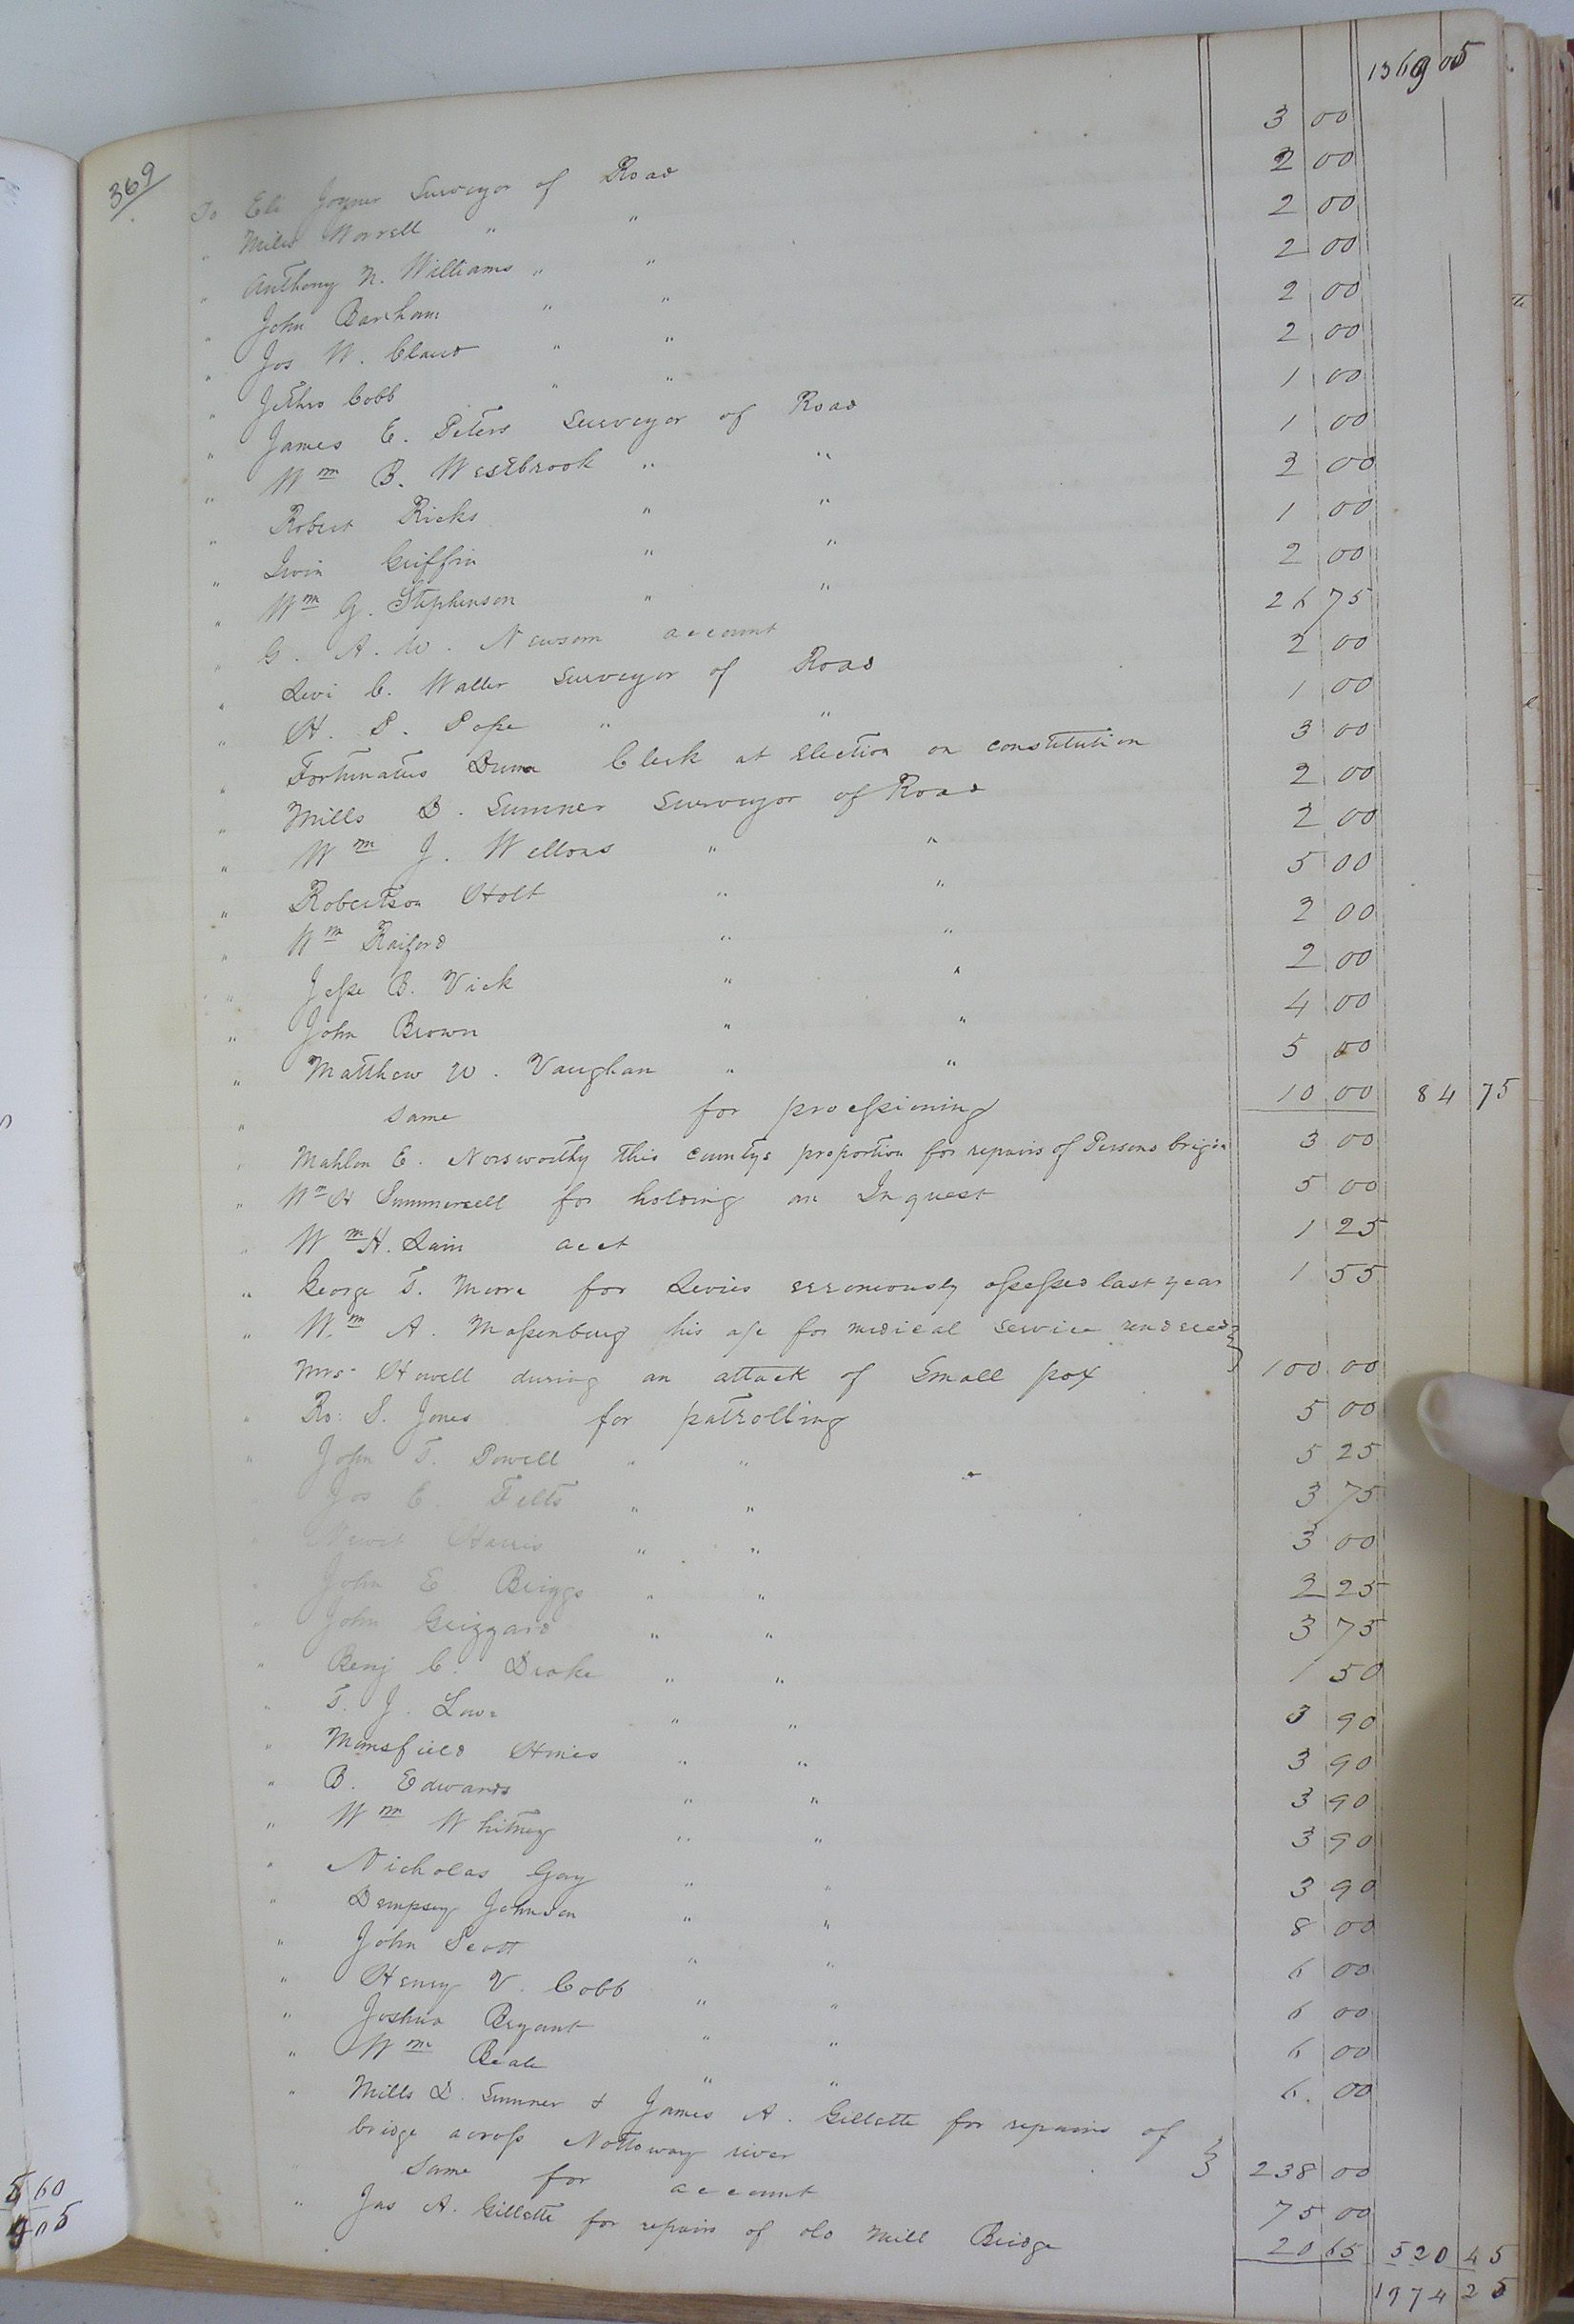 369
1369 05
To Eli Joyner Surveyor of Road 3 00
" Miles Worrell " " 2 00
" Anthony N. Williams " " 2 00
" John Barham " " 2 00
" Jos W. Claud " " 2 00
" Jethro Cobb " " 2 00
" James E. Peters Surveyor of Road 1 00
" Wm B. Westbrook " " 1 00
" Robert Ricks " " 2 00
" Irvin Griffin " " 1 00
" Wm G. Stephenson " " 2 00
" G. A. W. Newsom account 26 75
" Levi C. Waller Surveyor of Road 2 00
" H. P. Pope " " 1 00
" Fortunatus Clerk at Election on constitution 3 00
" Mills D. Sumner Surveyor of Road 2 00
" Wm J. Wellons " " 2 00
" Robertson Holt " " 5 00
" Wm Raiford " " 2 00
" Jesse B. Vick " " 2 00
" John Brown " " 4 00
" Matthew W. Vaughan " " 5 00
" same for processioning 10 00 84 75
" Mahlon E. Norsworthy this countys proportion for repairs of Persons brigde 3 00
" Wm H Summerell for holding an Inquest 5 00
" Wm H. Lain acct 1 25
" George T. Moore for Levies erroniously assessed last year 1 55
" Wm A. Massenburg his a/c for medical service rendered
Mrs Howell during an attack of Small pox 100 00
" Ro: S. Jones for patrolling 5 00
" John T. Powell " " 5 25
" Jos E. Felts " " 3 75
" Newit Harris " " 3 00
" John E. Briggs " " 2 25
" John Grizzard " " 3 75
" Benj C. Drake " " 1 50
" T. J. Lowe " " 3 90
" Mansfield Hines " " 3 90
" B. Edwards " " 3 90
" Wm Whitney " " 3 90
" Nicholas Gay " " 3 90
" Dempsey Johnson " " 8 00
" John Scott " " 6 00
" Henry V. Cobb " " 6 00
" Joshua Bryant " " 6 00
" Wm Beale " " 6 00
" Mills D. Sumner & James A. Gillette for repairs of
bridge across Nottoway river 238 00
" same for account 75 00
" Jas A. Gillette for repairs of old Mill Bridge 20 65 520 45
1974 25